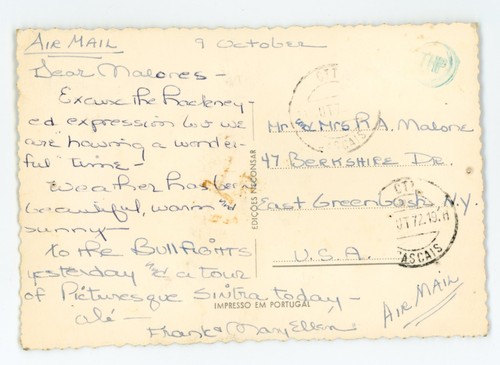 AIR MAIL
9 October
Dear Malones -
Excuse the hackney-
ed expression but we
are "having a wonder-
ful" time!
Weather has been
beautiful, warm &
sunny -
to the Bullfights
yesterday & a tour
of Picturesque Sintra today -
olé -
Frank & Mary Ellen
EDIÇÕES
IMPRESSO EM PORTUGAL
CTT
CASCAIS
Mr. & Mrs. R.A. Malone
47 BERKSHIRE DR.
East Greenbush, N.Y.
U.S.A.
CTT
72.10
CASCAIS
AIR MAIL